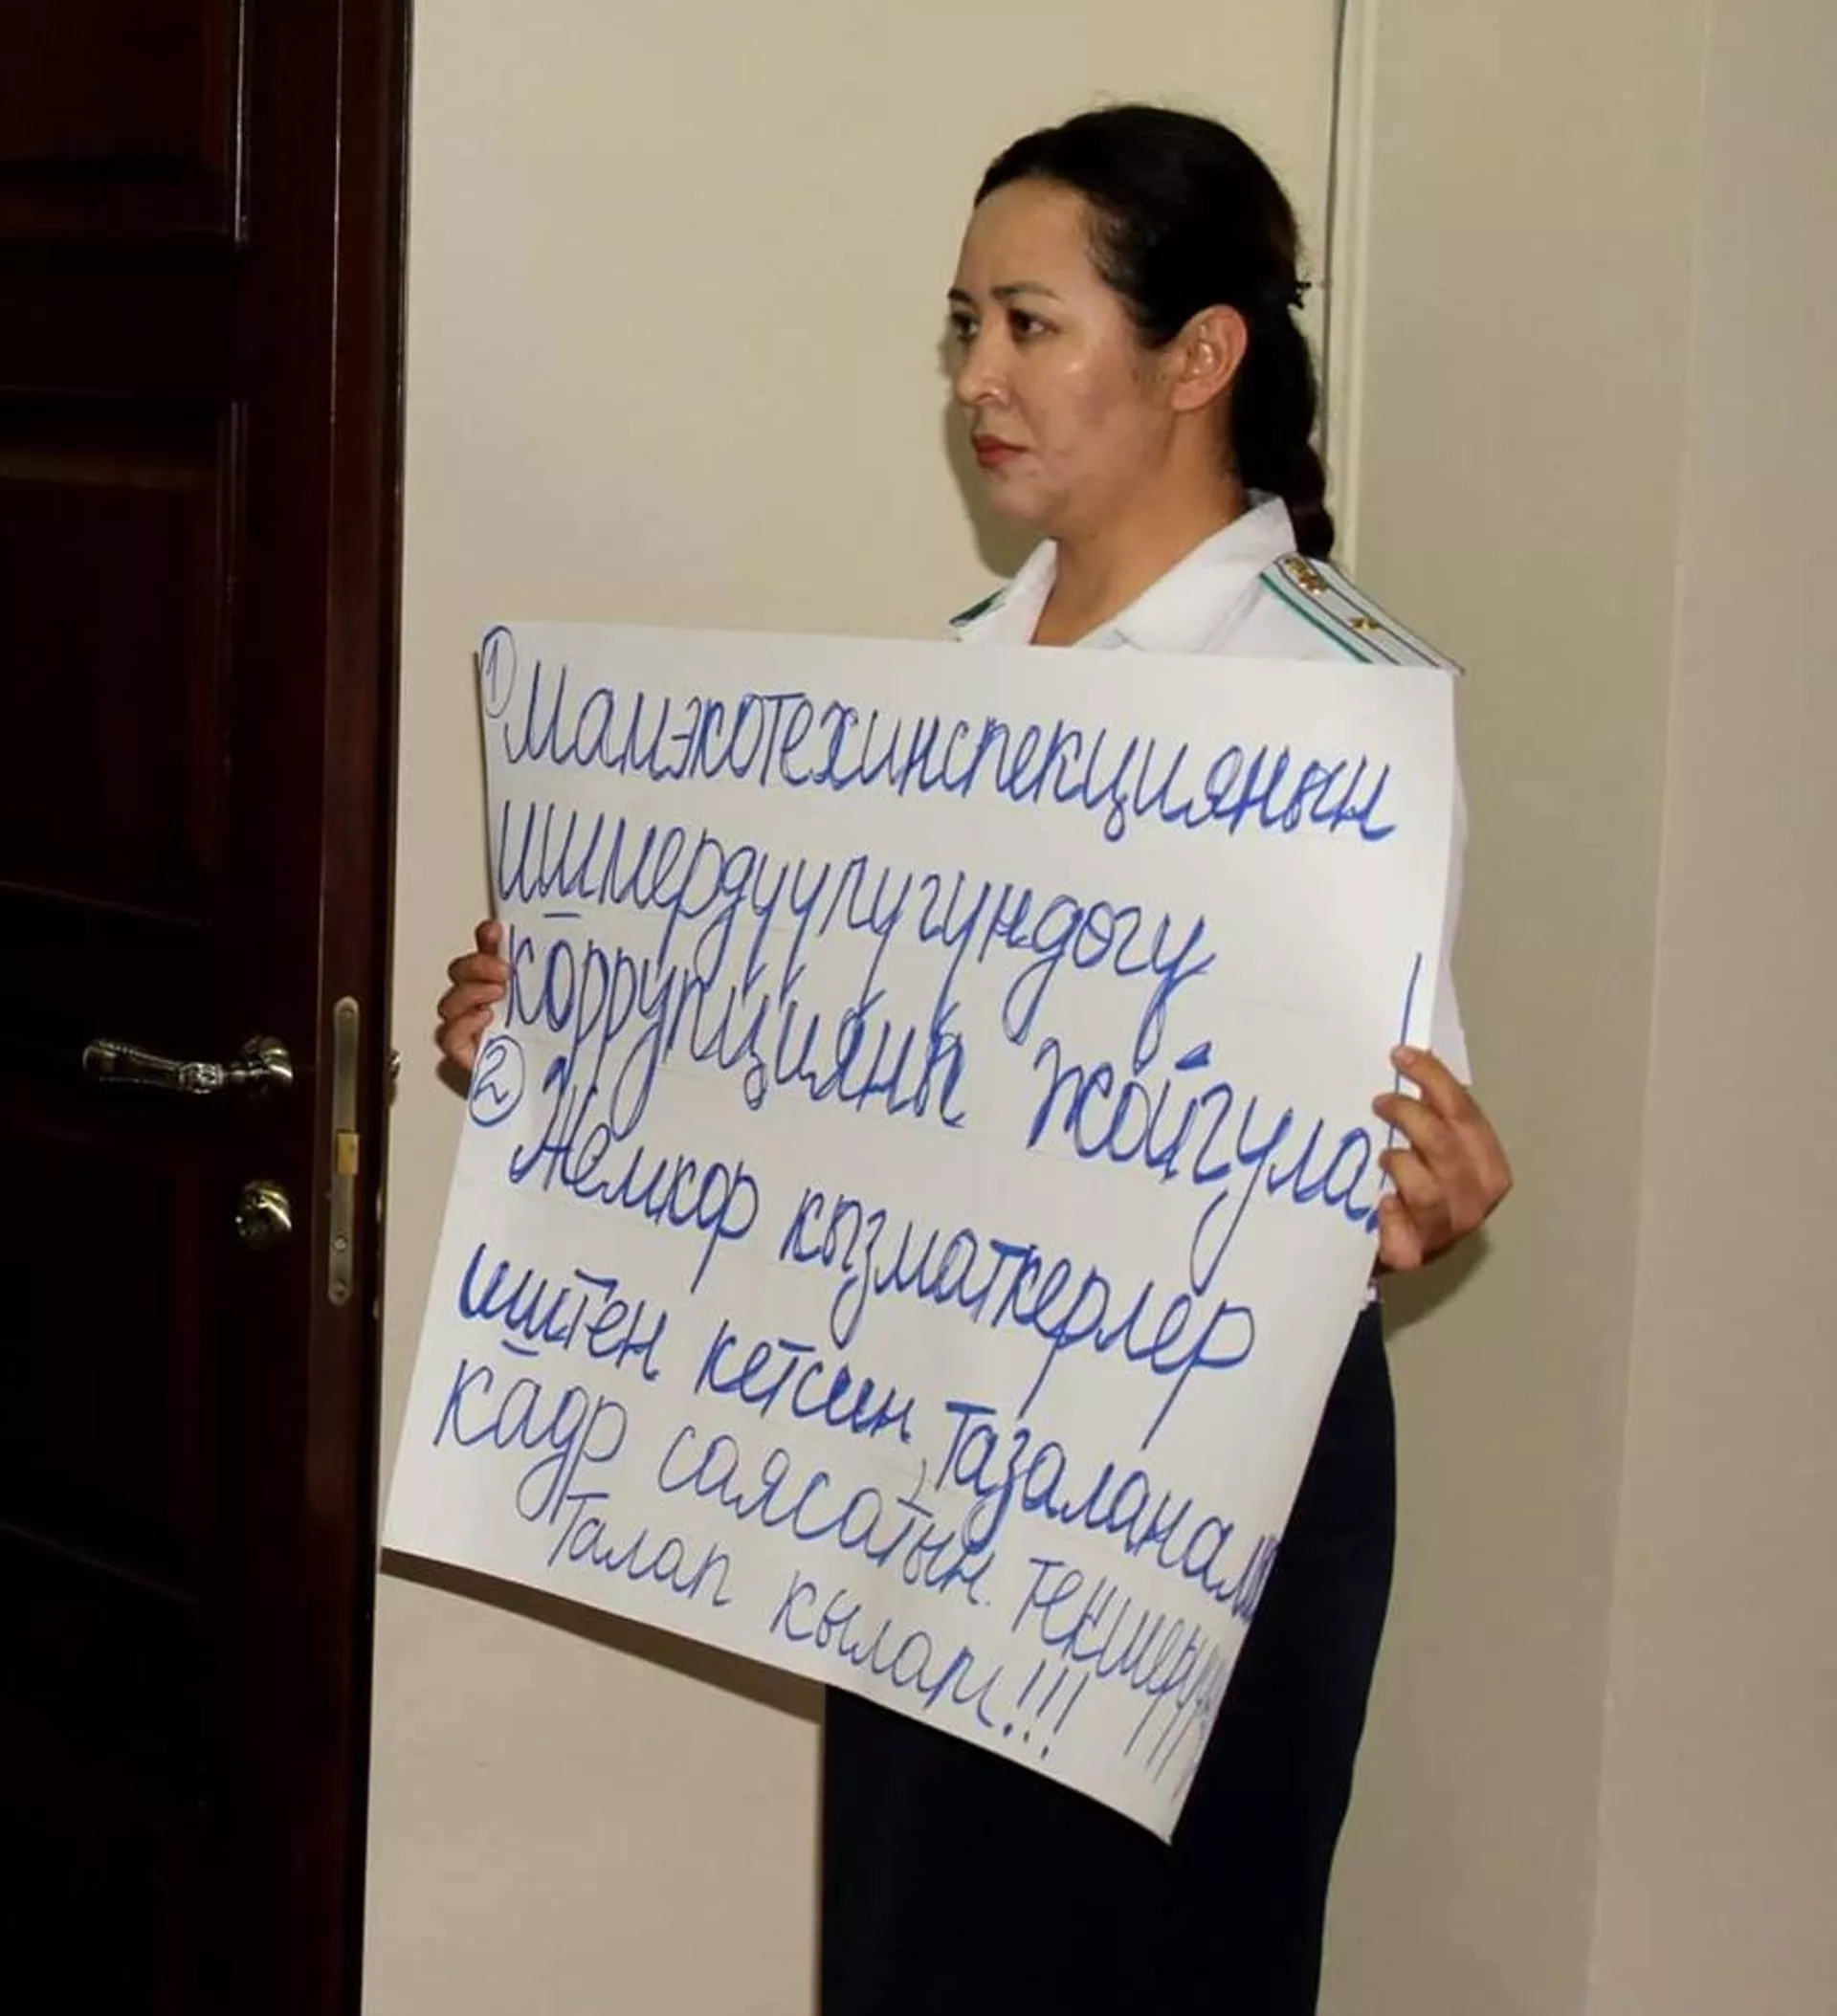 ① Мамэкотехинспекциянын
ишмердүүлүгүндөгу
коррупцияны жойгула!
② Жемкор кызматкерлер
иштен кетсин, тазалансын
кадр саясатын
Талап кылам!!!